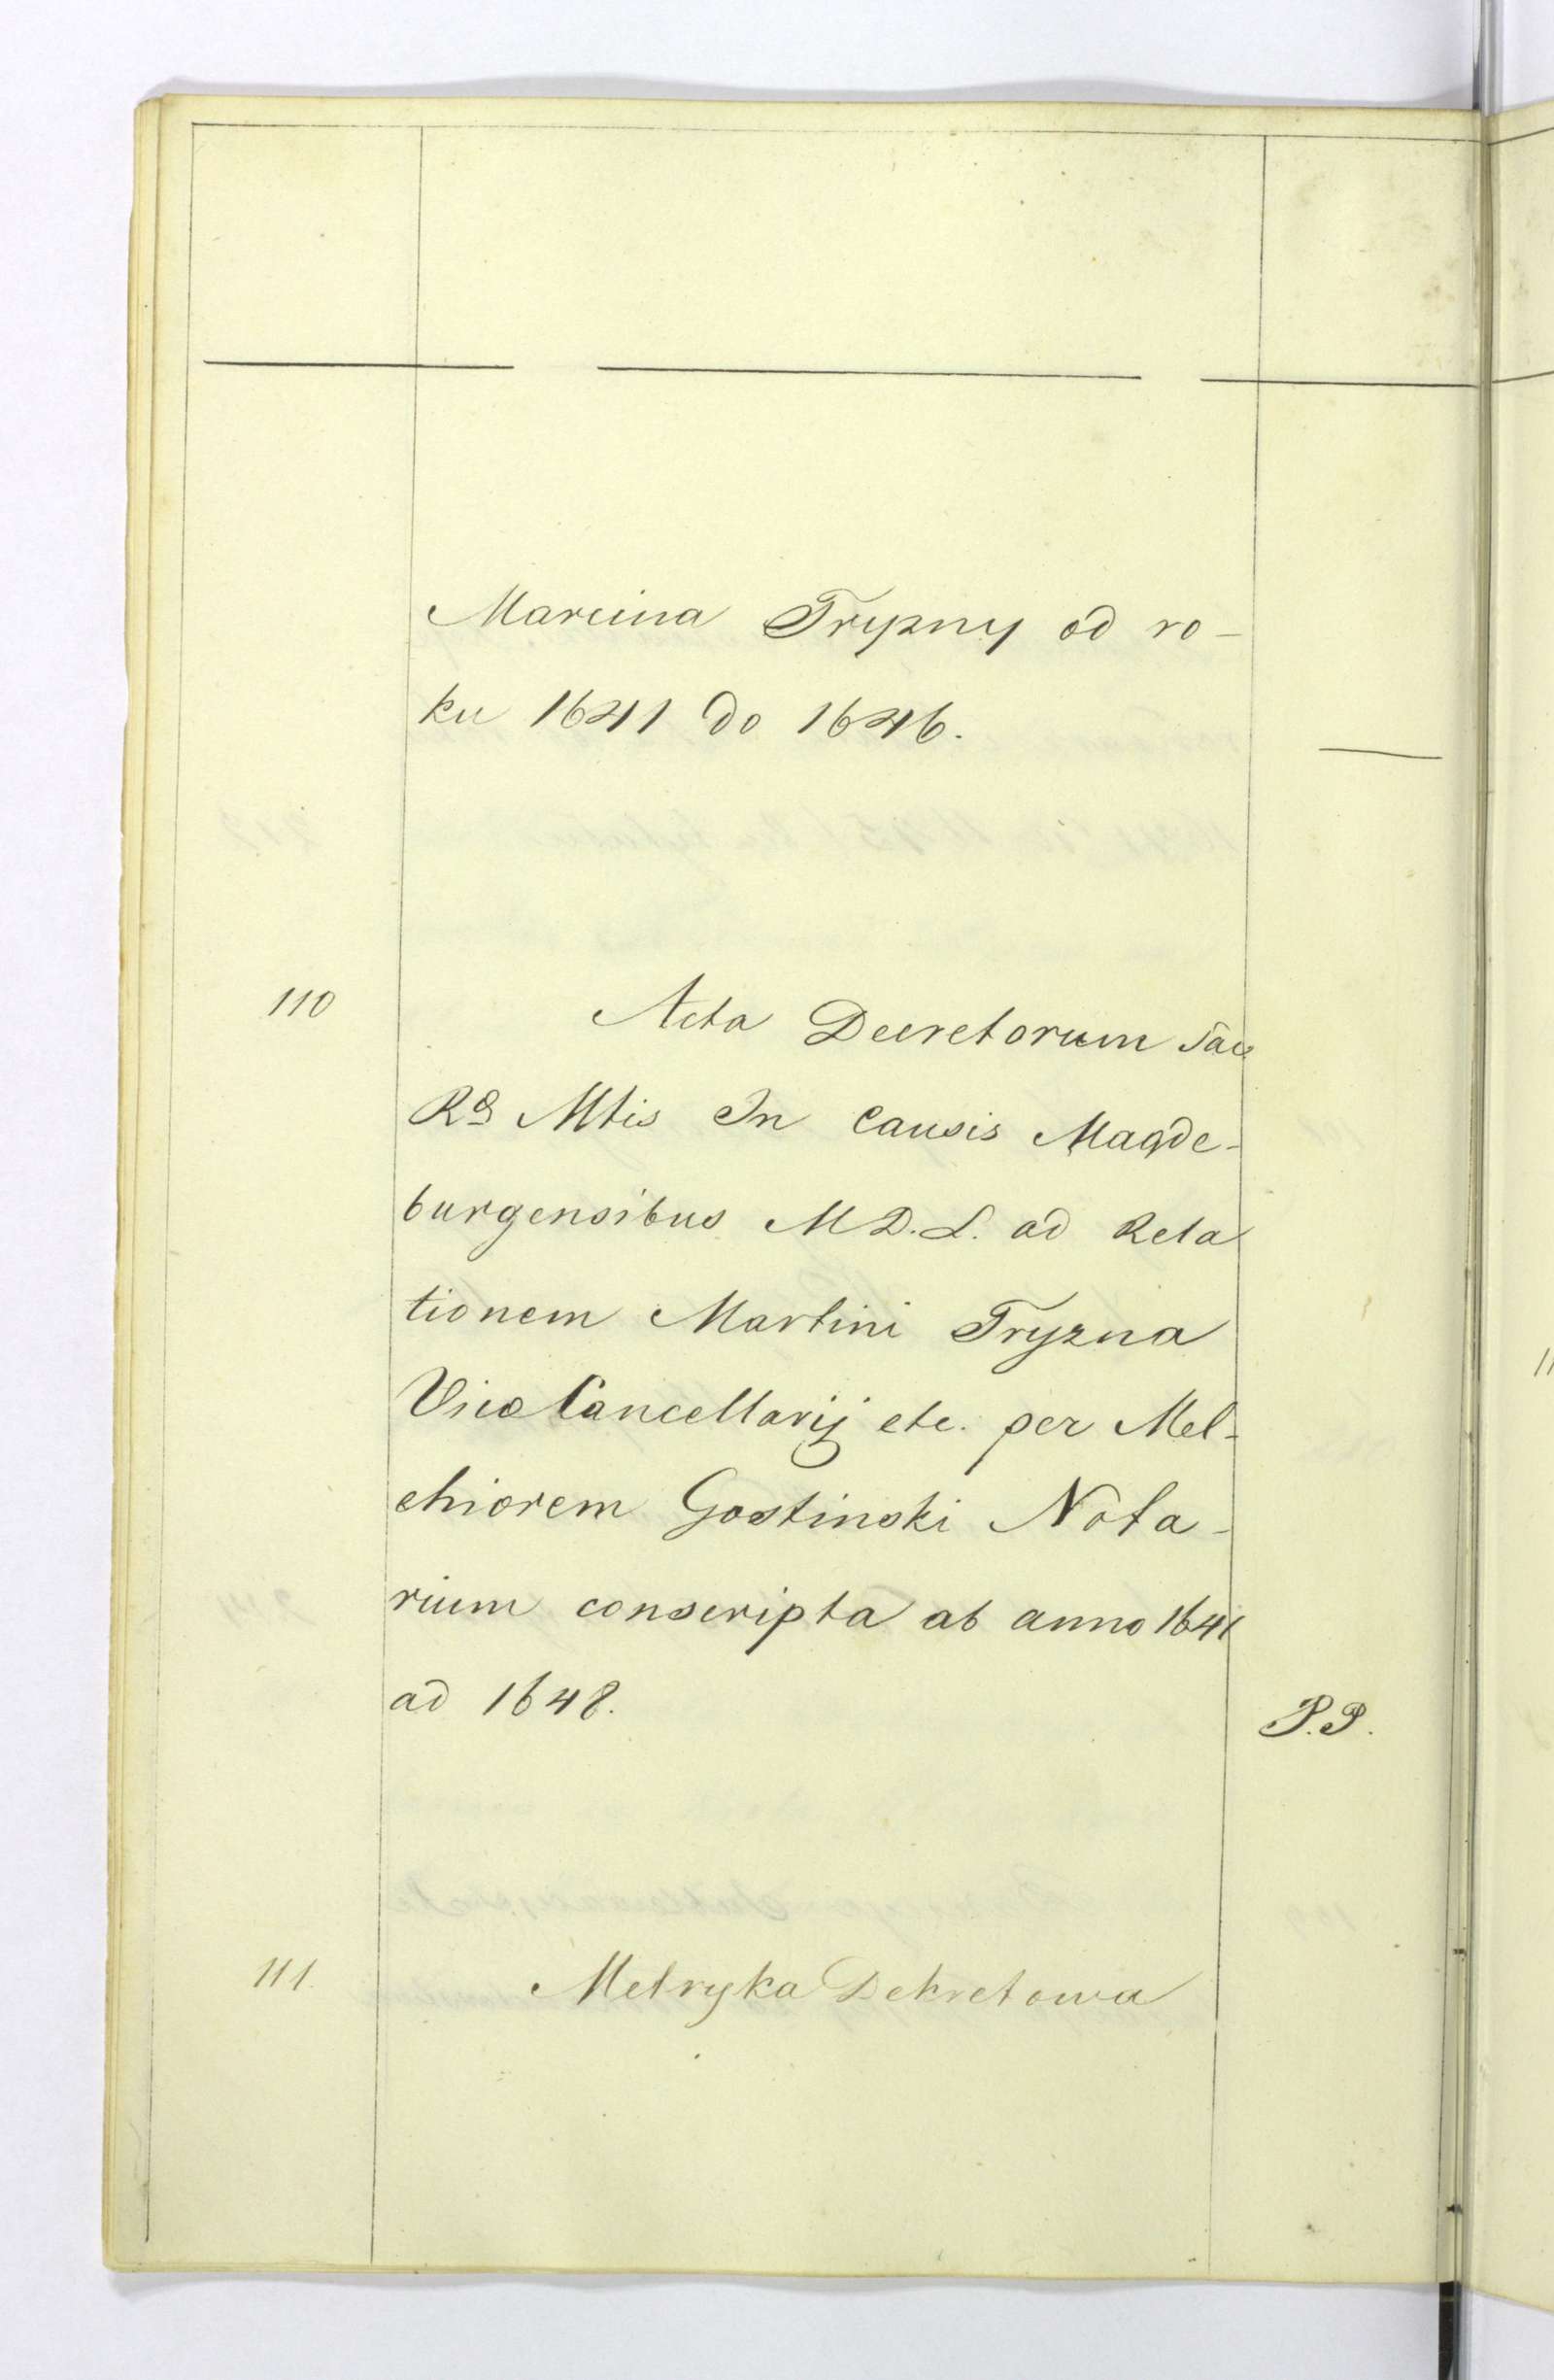 Marcina Tryzny od ro-
ku 1641 do 1646.
110
Acta Decretorum Sac
Rs Mtis In Causis Magde-
burgensibus M D. L. ad Rela
tionem Martini Tryzna
Vice Cancellarij etc. per Mel-
chiorem Gostinski Nota-
rium conscripta ab anno 1641
ad 1648.
P.P.
111.
Metryka Dekretowa